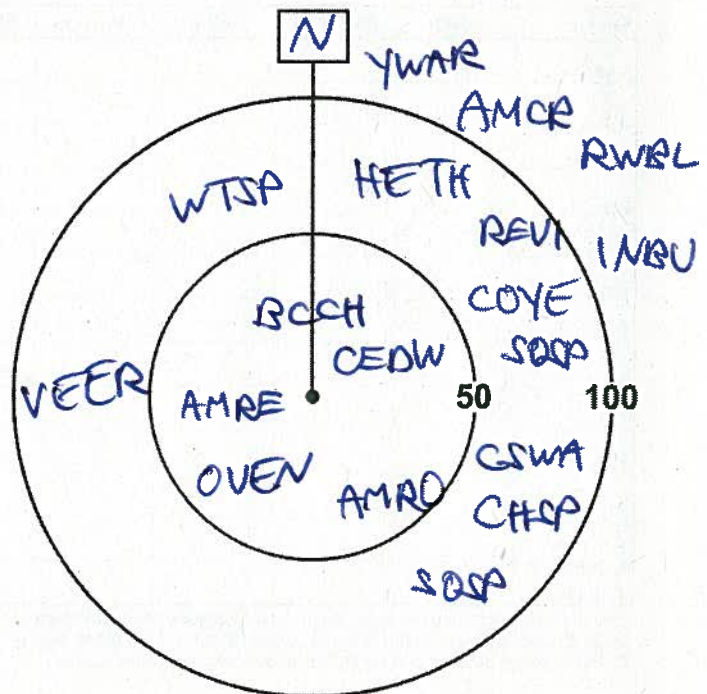 N
YWAR
AMCR
RWBL
WTSP
HETH
REVI
INBU
BCCH
COYE
CEDW
SOSP
VEER
AMRE
50
100
OVEN
AMRO
GSWA
CHSP
SOSP